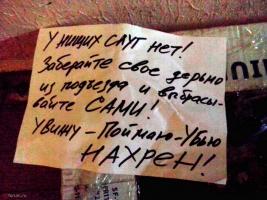 У нищих слуг нет!
Заберайте свое дерьмо
из подъезда и выбрасы-
вайте САМИ!
Увижу – Поймаю – Убью
НАХРЕН!